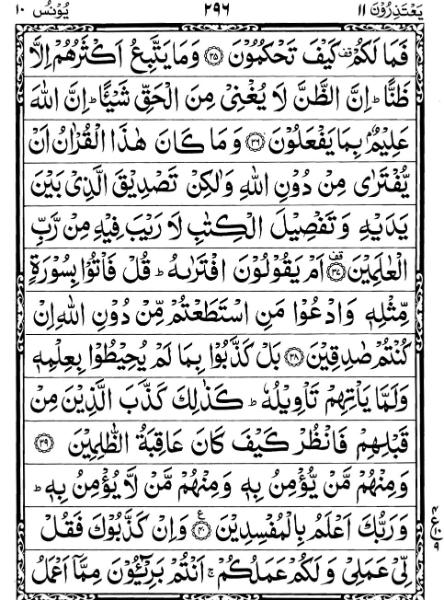 يَعْتَذِرُوْنَ ١١ ٢٩٦ يُوْنُس ١٠
فَمَا لَكُمْ قف كَيْفَ تَحْكُمُوْنَ ﴿٣٥﴾ وَمَا يَتَّبِعُ اَكْثَرُهُمْ اِلَّا
ظَنًّا ؕ اِنَّ الظَّنَّ لَا يُغْنِىْ مِنَ الْحَقِّ شَيْئًا ؕ اِنَّ اللهَ
عَلِيْمٌۢ بِمَا يَفْعَلُوْنَ ﴿٣٦﴾ وَمَا كَانَ هٰذَا الْقُرْاٰنُ اَنْ
يُّفْتَرٰى مِنْ دُوْنِ اللهِ وَلٰكِنْ تَصْدِيْقَ الَّذِىْ بَيْنَ
يَدَيْهِ وَتَفْصِيْلَ الْكِتٰبِ لَا رَيْبَ فِيْهِ مِنْ رَّبِّ
الْعٰلَمِيْنَ قف ﴿٣٧﴾ اَمْ يَقُوْلُوْنَ افْتَرٰىهُ ؕ قُلْ فَاْتُوْا بِسُوْرَةٍ
مِّثْلِهٖ وَادْعُوْا مَنِ اسْتَطَعْتُمْ مِّنْ دُوْنِ اللهِ اِنْ
كُنْتُمْ صٰدِقِيْنَ ﴿٣٨﴾ بَلْ كَذَّبُوْا بِمَا لَمْ يُحِيْطُوْا بِعِلْمِهٖ
وَلَمَّا يَاْتِهِمْ تَاْوِيْلُهٗ ؕ كَذٰلِكَ كَذَّبَ الَّذِيْنَ مِنْ
قَبْلِهِمْ فَانْظُرْ كَيْفَ كَانَ عَاقِبَةُ الظّٰلِمِيْنَ ﴿٣٩﴾
وَمِنْهُمْ مَّنْ يُّؤْمِنُ بِهٖ وَمِنْهُمْ مَّنْ لَّا يُؤْمِنُ بِهٖ ؕ
وَرَبُّكَ اَعْلَمُ بِالْمُفْسِدِيْنَ ﴿٤٠﴾ ع وَاِنْ كَذَّبُوْكَ فَقُلْ
٤ ع ١٠ ٩
لِّىْ عَمَلِىْ وَلَكُمْ عَمَلُكُمْ ۚ اَنْتُمْ بَرِيْٓــُٔوْنَ مِمَّاۤ اَعْمَلُ